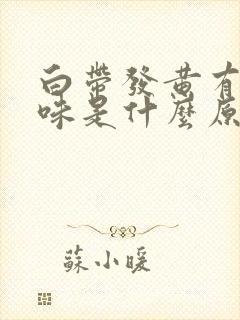 白帶發黃有
味是什麼原
蘇小暖